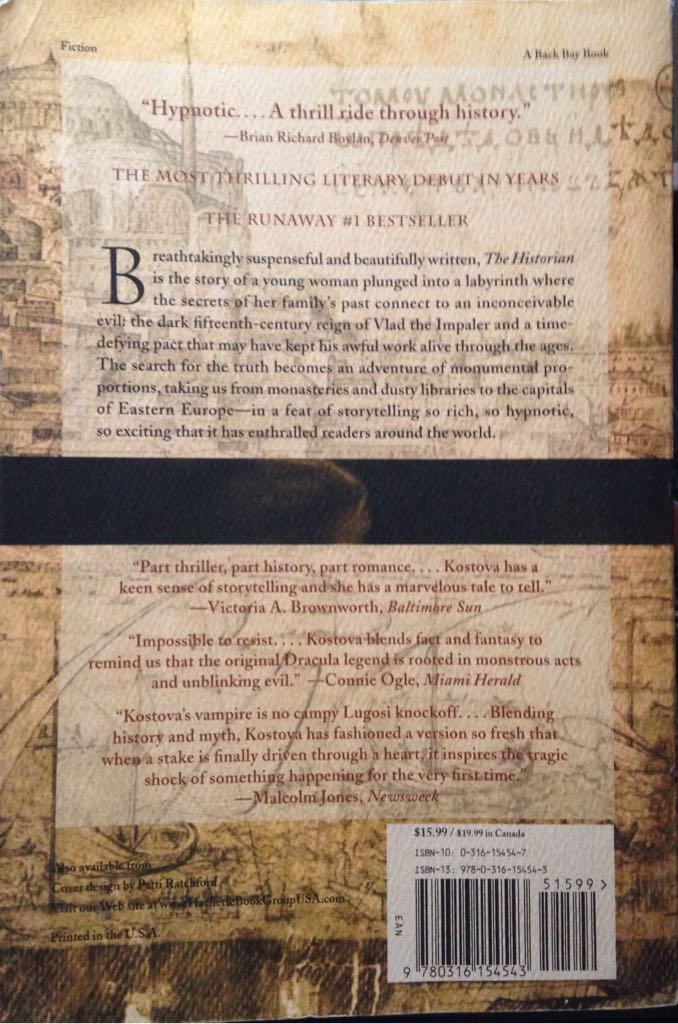 Fiction
A Back Bay Book
“Hypnotic.... A thrill ride through history.”
—Brian Richard Boylan, Denver Post
THE MOST THRILLING LITERARY DEBUT IN YEARS
THE RUNAWAY #1 BESTSELLER
Breathtakingly suspenseful and beautifully written, The Historian
is the story of a young woman plunged into a labyrinth where
the secrets of her family’s past connect to an inconceivable
evil: the dark fifteenth-century reign of Vlad the Impaler and a time-
defying pact that may have kept his awful work alive through the ages.
The search for the truth becomes an adventure of monumental pro-
portions, taking us from monasteries and dusty libraries to the capitals
of Eastern Europe—in a feat of storytelling so rich, so hypnotic,
so exciting that it has enthralled readers around the world.
“Part thriller, part history, part romance.... Kostova has a
keen sense of storytelling and she has a marvelous tale to tell.”
—Victoria A. Brownworth, Baltimore Sun
“Impossible to resist.... Kostova blends fact and fantasy to
remind us that the original Dracula legend is rooted in monstrous acts
and unblinking evil.” —Connie Ogle, Miami Herald
“Kostova’s vampire is no campy Lugosi knockoff.... Blending
history and myth, Kostova has fashioned a version so fresh that
when a stake is finally driven through a heart, it inspires the tragic
shock of something happening for the very first time.”
—Malcolm Jones, Newsweek
Also available from
Cover design by Patti Ratchford
Visit our Web site at www.HachetteBookGroupUSA.com
Printed in the U.S.A.
$15.99 / $19.99 in Canada
ISBN-10: 0-316-15454-7
ISBN-13: 978-0-316-15454-3
51599 >
EAN
9 780316 154543